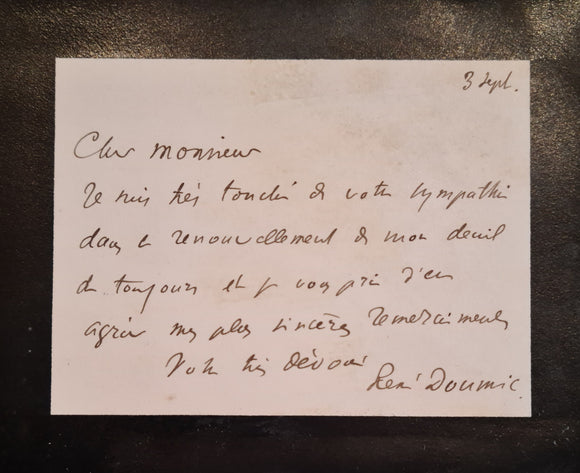 3 Sept.
Cher monsieur
Je suis très touché de votre sympathie
dans ce renouvellement de mon deuil
de toujours et je vous prie d'en
agréer mes plus sincères remerciements
Votre très dévoué
René Doumic.